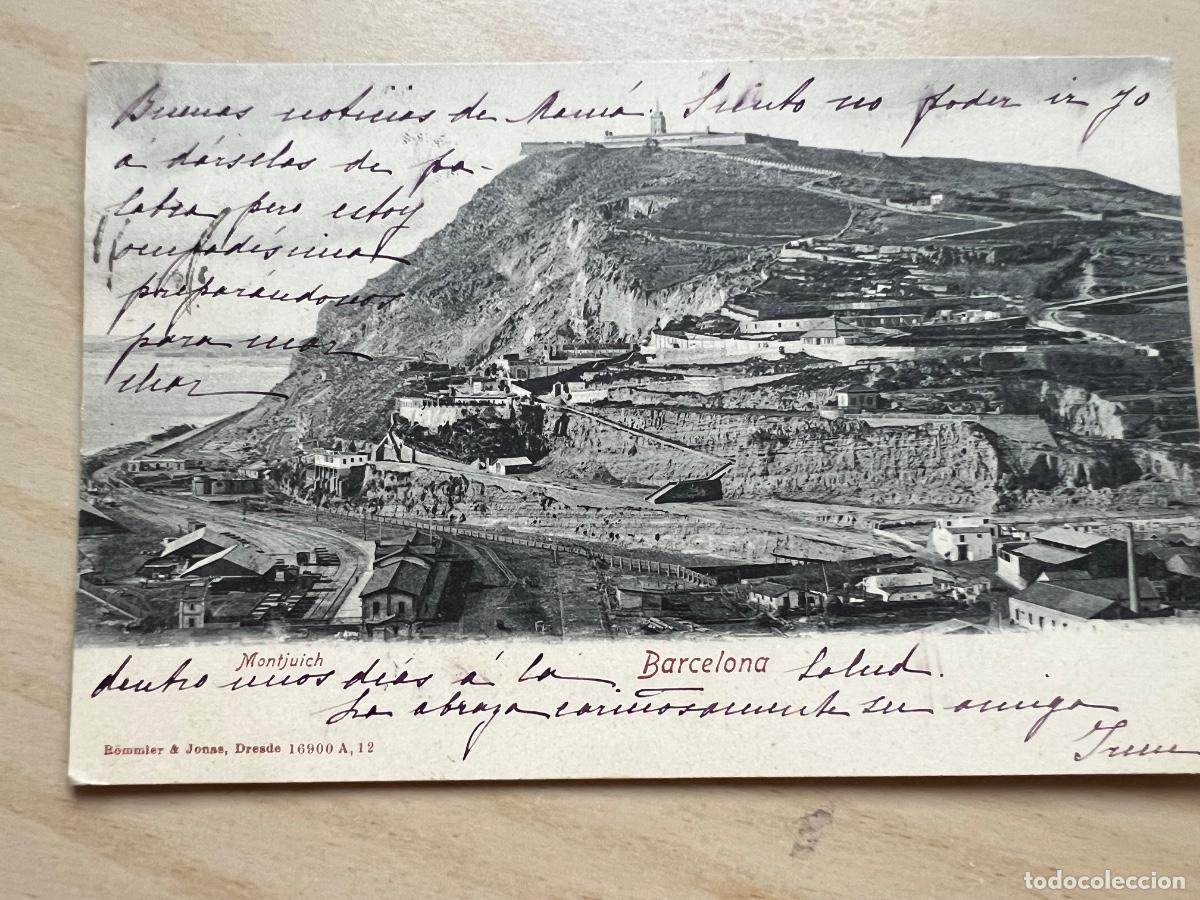 Buenas noticias de Mamá Siento no poder ir yo
á dárselas de pa-
labra pero estoy
ocupadísima
preparándonos
para mar
char
Montjuich
Barcelona
dentro unos días á la Salud.
La abraza cariñosamente su amiga
Irene
Römmler & Jonas, Dresde 16900 A, 12
todocoleccion